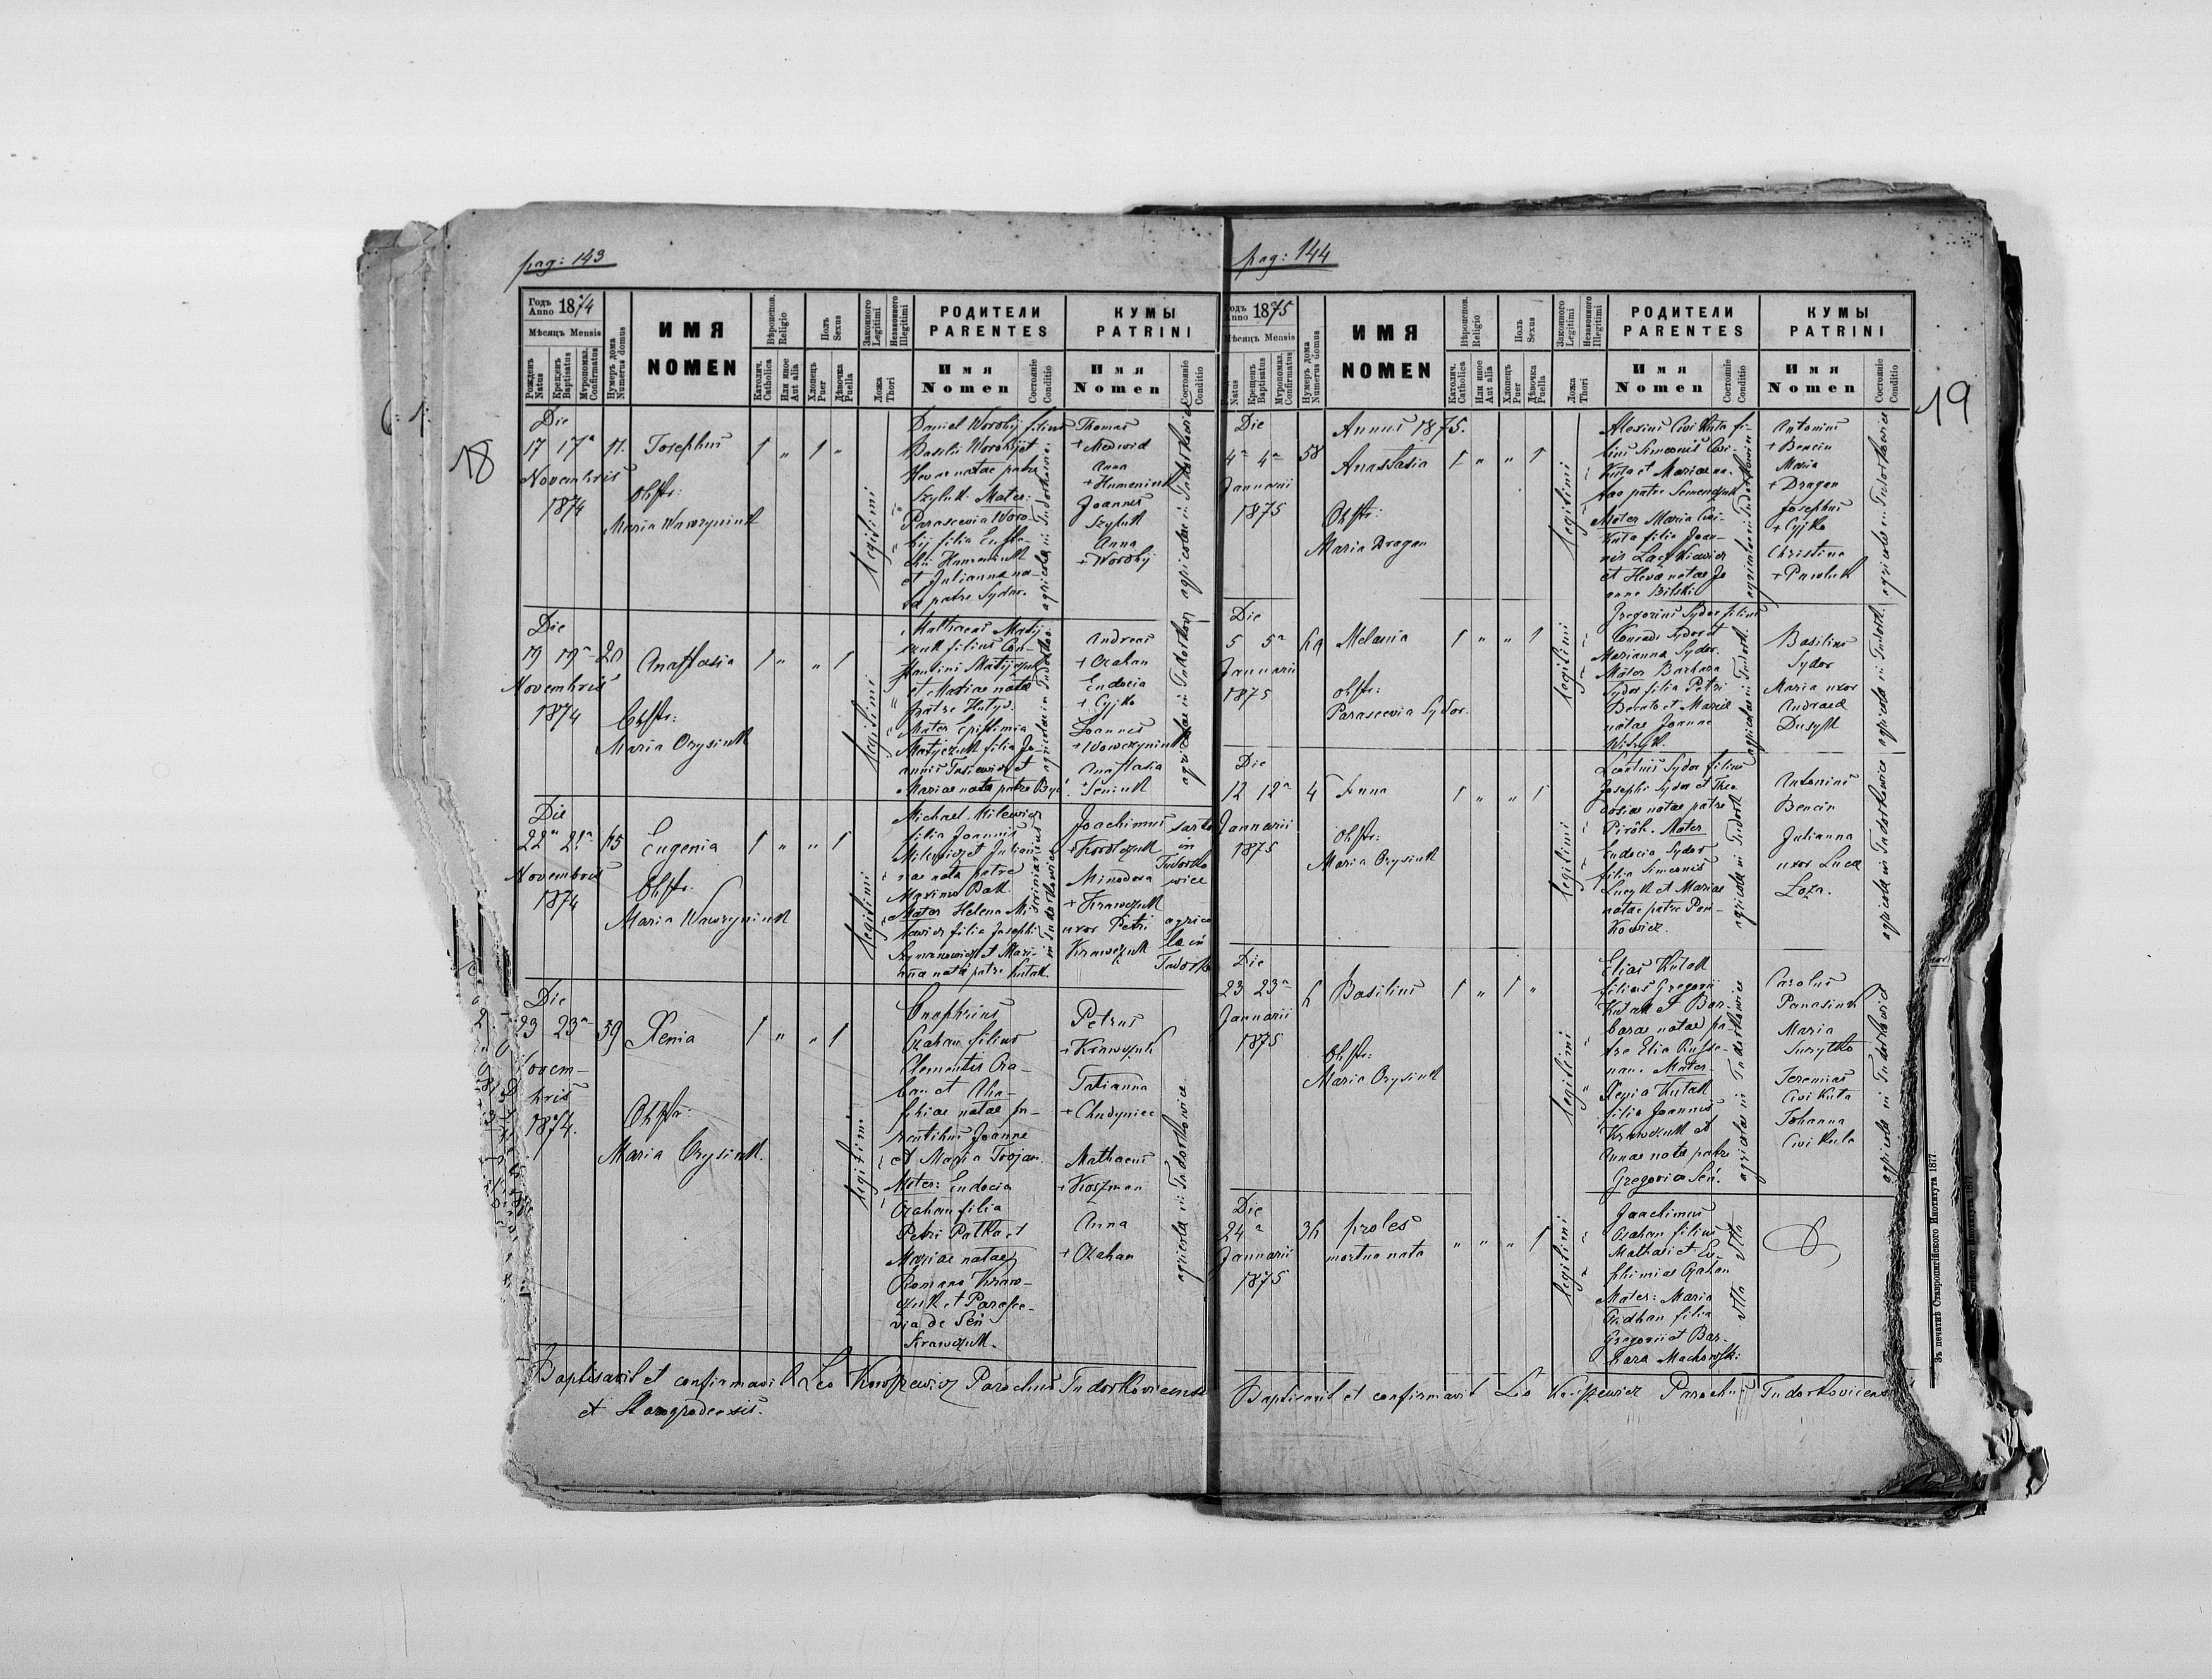 pag: 143
18
Годъ Anno 1874
Мѣсяцъ Mensis
Рожденъ Natus
Крещенъ Baptisatus
Муропомаз. Confirmatus
Нумеръ дома Numerus domus
ИМЯ
NOMEN
Вѣроиспов. Religio
Католич. Catholica
Или иное Aut alia
Полъ Sexus
Хлопецъ Puer
Дѣвочка Puella
Законного Legitimi
Незаконного Illegitimi
Ложа Thori
РОДИТЕЛИ
PARENTES
Имя
Nomen
Состояніе Conditio
КУМЫ
PATRINI
Имя
Nomen
Состояніе Conditio
Die
17 17ª 11. Josephus 1 „ 1 „
Novembris
1874
Obstr:
Maria Wawryniuk
legitimi
Daniel Worobij filius
Basilii Worobij et
Hevae natae patre
Szyluk. Mater:
Parascevia Woro-
bij filia Eusta-
chii Humeniuk
et Julianna na-
ta patre Sydor.
agricolae in Tudorkowice
Thomas
+ Medwid
Anna
+ Humeniuk
Joannes
Szyluk
Anna
+ Worobij
agricolae in Tudorkowice
Die
19 19ª 20 Anastasia 1 „ „ 1
Novembris
1874
Obstr:
Maria Orysiuk
legitimi
Mathaeus Matij-
czuk filius Con-
stantini Matijczuk
et Mariae natae
patre Hutys.
Mater Epistimia
Matijczuk filia Jo-
annis Tasiewicz et
Mariae nata patre Być
agricolae in Tudorko.
Andreas
+ Czaban
Eudocia
+ Cyjko
Joannes
+ Wawryniuk
Anastasia
+ Seniuk
agricolae in Tudorkow
Die
22ª 22ª 15 Eugenia 1 „ „ 1
Novembris
1874
Obstr.
Maria Wawryniuk
legitimi
Michael Milewicz
filia Joannis
Milewicz et Julian-
nae nata patre
Maximo Bak.
Mater Helena Mi-
lewicz filia Josephi
Szymanowicz et Mari-
anna nata patre Kutak.
in Tudorkowice
Joachimus
+ Korolczuk
Minodora
+ Krawczuk
uxor Petri
Krawczuk
sarto
in
Tudorko
wice
agrico
la in
Tudork
Die
23 23ª 39 Xenia 1 „ „ 1
Novem-
bris
1874.
Obstr:
Maria Orysiuk.
legitimi
Onuphrius
Czaban filius
Clementis Cza-
ban et Aha-
phiae natae pa-
rentibus Joanne
et Maria Trojan.
Mater: Eudocia
Czaban filia
Petri Patka et
Mariae natae
Romano Kraw-
czuk et Parasce-
via de Seń
Krawczuk.
Petrus
+ Krawczuk
Tatianna
+ Chudyniec
Mathaeus
+ Koszman
Anna
+ Czaban
agricola in Tudorkowice
Baptisavit et confirmavit Leo Karpewicz Parochus Tudorkovicensis
et Starogrodensis.
pag: 144
19
Годъ Anno 1875
Мѣсяцъ Mensis
Natus
Крещенъ Baptisatus
Муропомаз. Confirmatus
Нумеръ дома Numerus domus
ИМЯ
NOMEN
Вѣроиспов. Religio
Католич. Catholica
Или иное Aut alia
Полъ Sexus
Хлопецъ Puer
Дѣвочка Puella
Законного Legitimi
Незаконного Illegitimi
Ложа Thori
РОДИТЕЛИ
PARENTES
Имя
Nomen
Состояніе Conditio
КУМЫ
PATRINI
Имя
Nomen
Состояніе Conditio
Die Annus 1875.
4ª 4ª 58 Anastasia 1 „ „ 1
Januarii
1875
Obstr:
Maria Dragan
legitimi
Alexius Cwikuta fi-
lius Simeonis Cwi-
kuta et Mariae na-
tae patre Semenczuk
Mater Maria Cwi-
kuta filia Joan-
nis Laszkiewicz
et Hevae natae Jo
anne Bilski
agricolae in Tudorkowice
Antonius
+ Bencin
Maria
+ Dragan
Josephus
+ Cyjko
Christina
+ Pawluk
agricolae in Tudorkowice
Die
5 5ª Melania 1 „ „ 1
Januarii
1875
Obstr:
Parascevia Sydor.
legitimi
Gregorius Sydor filius
Conradi Sydor et
Marianna Sydor.
Mater Barbara
Sydor filia Petri
et Mariae
natae Joanne
agricolae in Tudork.
Basilius
Sydor
Maria uxor
Andreae
agricola in Tudork.
Die
12 12ª 4 Anna 1 „ „ 1
Januarii
1875
Obstr:
Maria Orysiuk
legitimi
Leontius Sydor filius
Josephi Sydor et Theo
dosiae natae patre
Piróh. Mater
Eudocia Sydor
filia Simeonis
Lucyk et Mariae
natae patre Pan-
kowicz.
agricola in Tudork
Antonius
Bencin
Julianna
uxor Lucae
Łoza.
agricola in Tudorkowice
Die
23 23ª Basilius 1 „ 1 „
Januarii
1875
Obstr:
Maria Orysiuk
legitimi
Elias Kutak
filius Gregorii
Kutak et Bar-
barae natae pa-
tre Elia Russo-
nan. Mater
Xenia Kutak
filia Joannis
Krawczuk et
Annae nata patre
Gregorio Seń.
agricolae in Tudorkowice
Carolus
Panasiuk
Maria
Jeremias
Cwikuta
Johanna
Cwikuta
agricola in Tudorkowice
Die
24ª 36 proles „ „ „ 1
Januarii mortua nata
1875
legitimi
Joachimus
Czaban filius
Mathaei et Eu-
phimiae Czaban
Mater: Maria
Czaban filia
Gregorii et Bar-
bara Machowski
dtto dtto
Baptisavit et confirmavit Leo Karpewicz Parochus Tudorkovicens
Зъ печатнѣ Ставропигійского Института 1877.